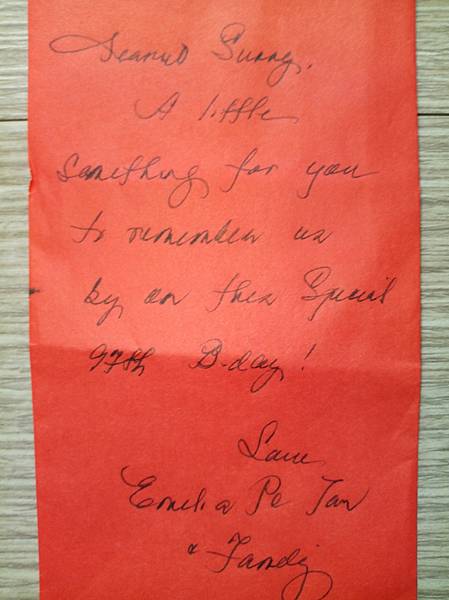 Sunny,
A little
something for you
to remember us
by on this Special
97th B-day!
Love
Emelia Pe Tan
& Family